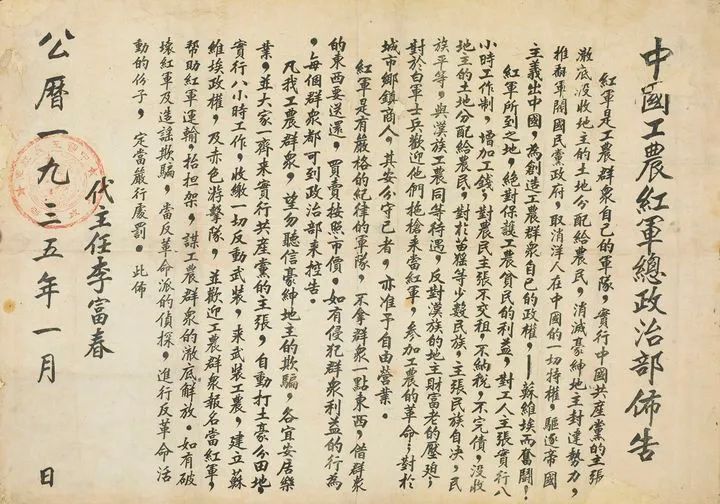 中國工農紅軍總政治部佈告
紅軍是工農群衆自己的軍隊,實行中國共産黨的主張
澈底沒收地主的土地分配給農民,消滅豪紳地主封建勢力,
推翻軍閥國民黨政府,取消洋人在中國的一切特權,驅逐帝國
主義出中國,為創造工農群衆自己的政權,——蘇維埃而奮鬪!
紅軍所到之地,絕對保護工農貧民的利益,對工人主張實行八
小時工作制,增加工錢,對農民主張不交租,不納稅,不完債,沒收
地主的土地分配給農民,對於苗猺等少數民族,主張民族自决,民
族平等,與漢族工農同等待遇,反對漢族的地主財富老的壓迫,
對於白軍士兵歡迎他們拖槍來當紅軍,參加工農的革命,對於
城市鄉鎮商人,其安分守己者,亦准予自由營業。
紅軍是有嚴格的紀律的軍隊,不拿群衆一點東西,借群衆
的東西要送還,買賣按照市價。如有侵犯群衆利益的行為
,每個群衆都可到政治部來控告。
凡我工農群衆,望勿聽信豪紳地主的欺騙,各宜安居樂
業,並大家一齊來實行共産黨的主張,自動打土豪分田地,
實行八小時工作,收繳一切反動武裝,來武裝工農,建立蘇
維埃政權,及赤色游擊隊,並歡迎工農群衆報名當紅軍,
幫助紅軍運輸,抬担架,謀工農群衆的澈底解放。如有破
壞紅軍及造謠欺騙,當反革命派的偵探,進行反革命活
動的份子,定當嚴行處罰。此佈
代主任李富春
公曆一九三五年一月 日